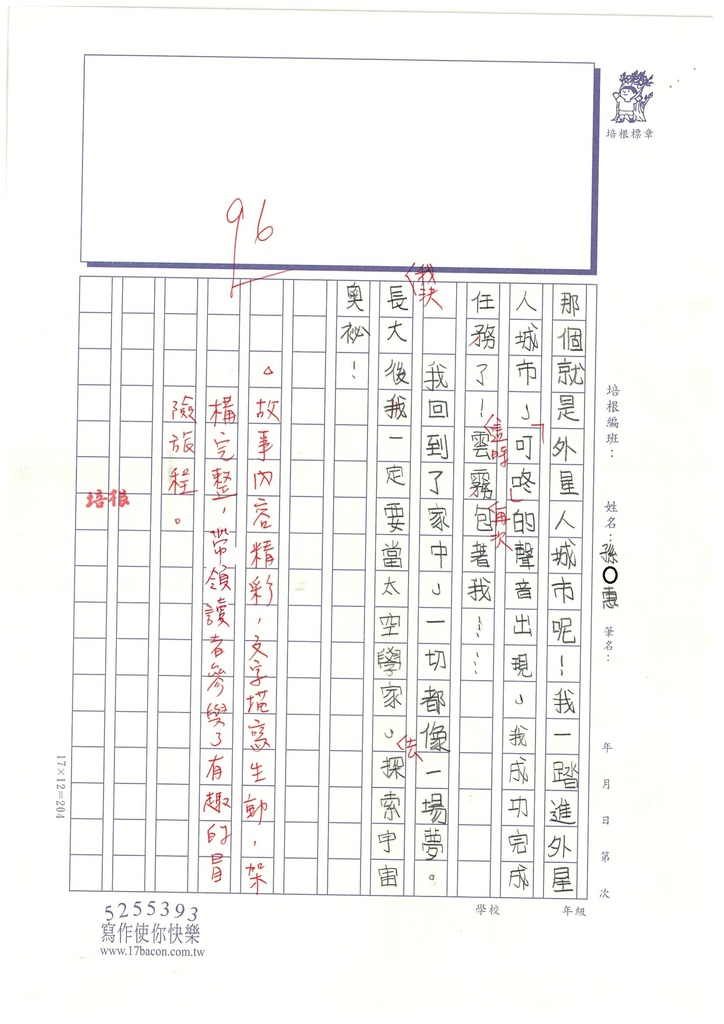 培根標章
培根編班：
姓名：孫○惠
筆名：
年 月 日 第 次
96
那個就是外星人城市呢！我一踏進外星
人城市，「叮咚」的聲音出現，我成功完成
任務了！這時雲霧再次包著我……
我回到了家中，一切都像一場夢。
我決
長大後我一定要當太空學家，去探索宇宙
奧祕！
。故事內容精彩，文字描寫生動，架
構完整，帶領讀者參與了有趣的冒
險旅程。
培根
17×12=204
學校 年級
5255393
寫作使你快樂
www.17bacon.com.tw